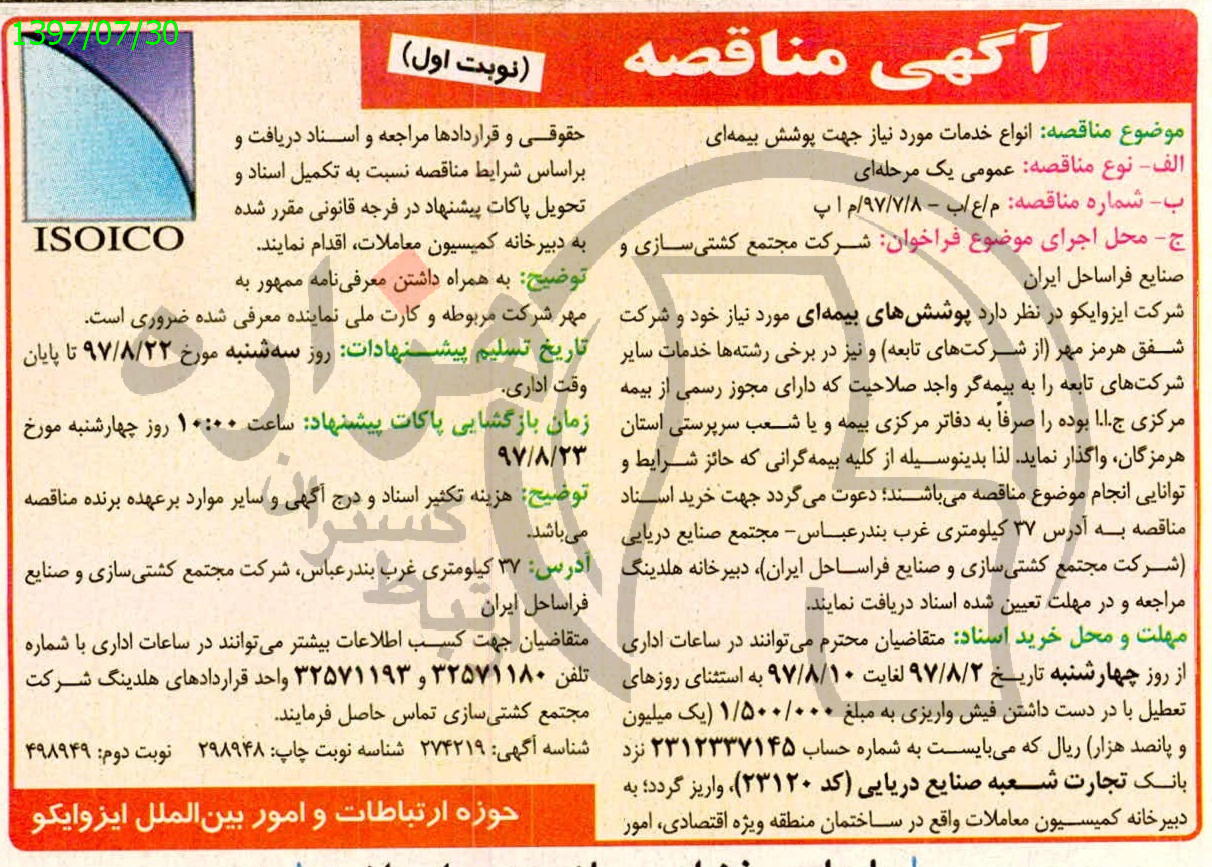 1397/07/30
آگهی مناقصه
(نوبت اول)
ISOICO
موضوع مناقصه: انواع خدمات مورد نیاز جهت پوشش بیمه‌ای
الف- نوع مناقصه: عمومی یک مرحله‌ای
ب- شماره مناقصه: م/ع/ب – ۹۷/۷/۸/م ا پ
ج- محل اجرای موضوع فراخوان: شرکت مجتمع کشتی‌سازی و
صنایع فراساحل ایران
شرکت ایزوایکو در نظر دارد پوشش‌های بیمه‌ای مورد نیاز خود و شرکت
شفق هرمز مهر (از شرکت‌های تابعه) و نیز در برخی رشته‌ها خدمات سایر
شرکت‌های تابعه را به بیمه‌گر واجد صلاحیت که دارای مجوز رسمی از بیمه
مرکزی ج.ا.ا بوده را صرفاً به دفاتر مرکزی بیمه و یا شعب سرپرستی استان
هرمزگان، واگذار نماید. لذا بدینوسیله از کلیه بیمه‌گرانی که حائز شرایط و
توانایی انجام موضوع مناقصه می‌باشند؛ دعوت می‌گردد جهت خرید اسناد
مناقصه به آدرس ۳۷ کیلومتری غرب بندرعباس- مجتمع صنایع دریایی
(شرکت مجتمع کشتی‌سازی و صنایع فراساحل ایران)، دبیرخانه هلدینگ
مراجعه و در مهلت تعیین شده اسناد دریافت نمایند.
مهلت و محل خرید اسناد: متقاضیان محترم می‌توانند در ساعات اداری
از روز چهارشنبه تاریخ ۹۷/۸/۲ لغایت ۹۷/۸/۱۰ به استثنای روزهای
تعطیل با در دست داشتن فیش واریزی به مبلغ ۱/۵۰۰/۰۰۰ (یک میلیون
و پانصد هزار) ریال که می‌بایست به شماره حساب ۲۳۱۲۳۳۷۱۴۵ نزد
بانک تجارت شعبه صنایع دریایی (کد ۲۳۱۲۰)، واریز گردد؛ به
دبیرخانه کمیسیون معاملات واقع در ساختمان منطقه ویژه اقتصادی، امور
حقوقی و قراردادها مراجعه و اسناد دریافت و
براساس شرایط مناقصه نسبت به تکمیل اسناد و
تحویل پاکات پیشنهاد در فرجه قانونی مقرر شده
به دبیرخانه کمیسیون معاملات، اقدام نمایند.
توضیح: به همراه داشتن معرفی‌نامه ممهور به
مهر شرکت مربوطه و کارت ملی نماینده معرفی شده ضروری است.
تاریخ تسلیم پیشنهادات: روز سه‌شنبه مورخ ۹۷/۸/۲۲ تا پایان
وقت اداری.
زمان بازگشایی پاکات پیشنهاد: ساعت ۱۰:۰۰ روز چهارشنبه مورخ
۹۷/۸/۲۳
توضیح: هزینه تکثیر اسناد و درج آگهی و سایر موارد برعهده برنده مناقصه
می‌باشد.
آدرس: ۳۷ کیلومتری غرب بندرعباس، شرکت مجتمع کشتی‌سازی و صنایع
فراساحل ایران
متقاضیان جهت کسب اطلاعات بیشتر می‌توانند در ساعات اداری با شماره
تلفن ۳۲۵۷۱۱۸۰ و ۳۲۵۷۱۱۹۳ واحد قراردادهای هلدینگ شرکت
مجتمع کشتی‌سازی تماس حاصل فرمایند.
شناسه آگهی: ۲۷۴۲۱۹ شناسه نوبت چاپ: ۲۹۸۹۴۸ نوبت دوم: ۴۹۸۹۴۹
حوزه ارتباطات و امور بین‌الملل ایزوایکو
هزاره
گستران
ارتباط